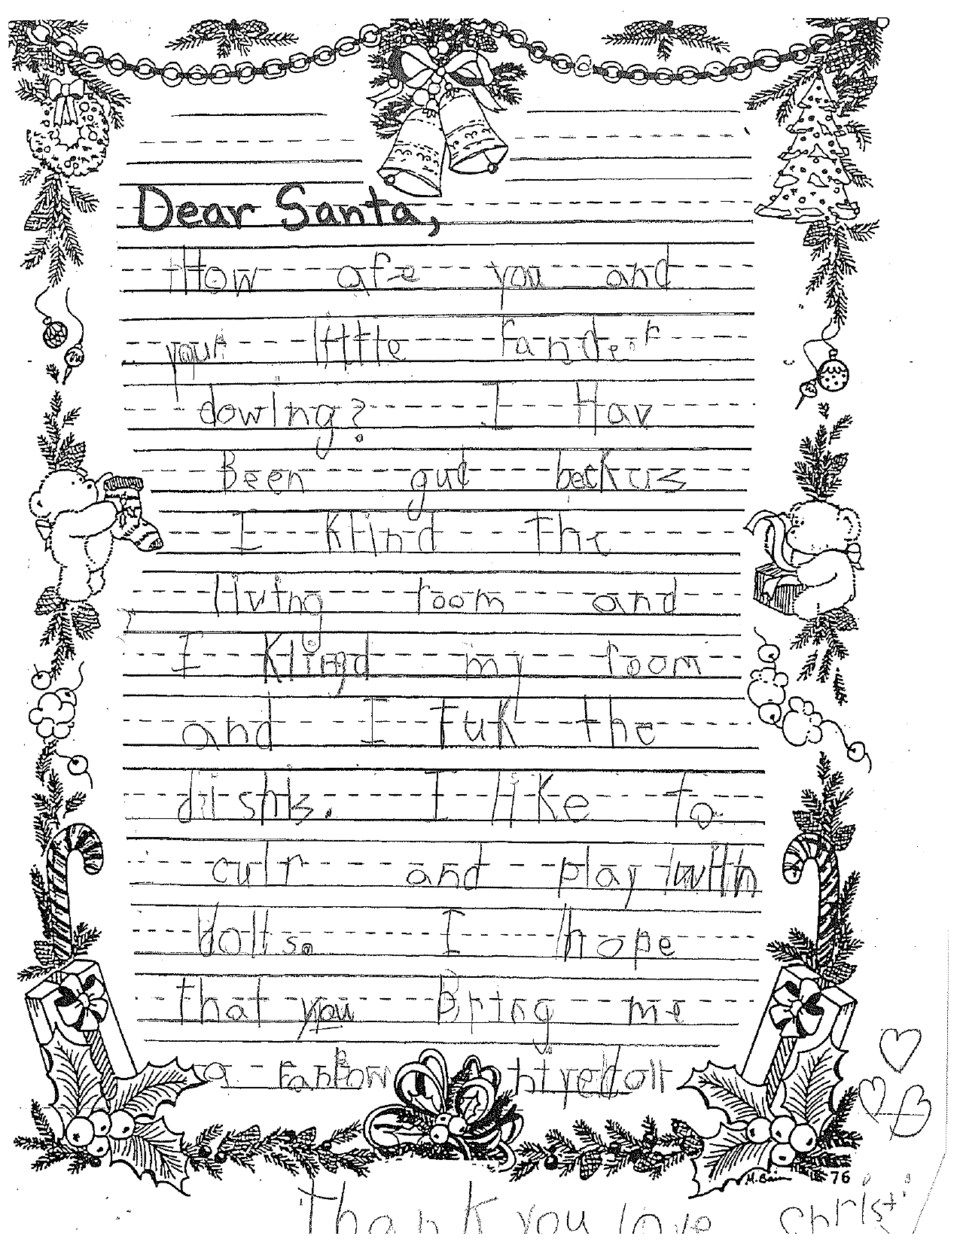 Dear Santa,
How are you and
your little rander
dowing? I Hav
Been gud beckus
I klind the
living room and
I klind my room
and I Tuk the
dishis. I like to
culr and play with
dolls. I hope
that you Bring me
a ranbow
Thank you love christ
M. Bain 76